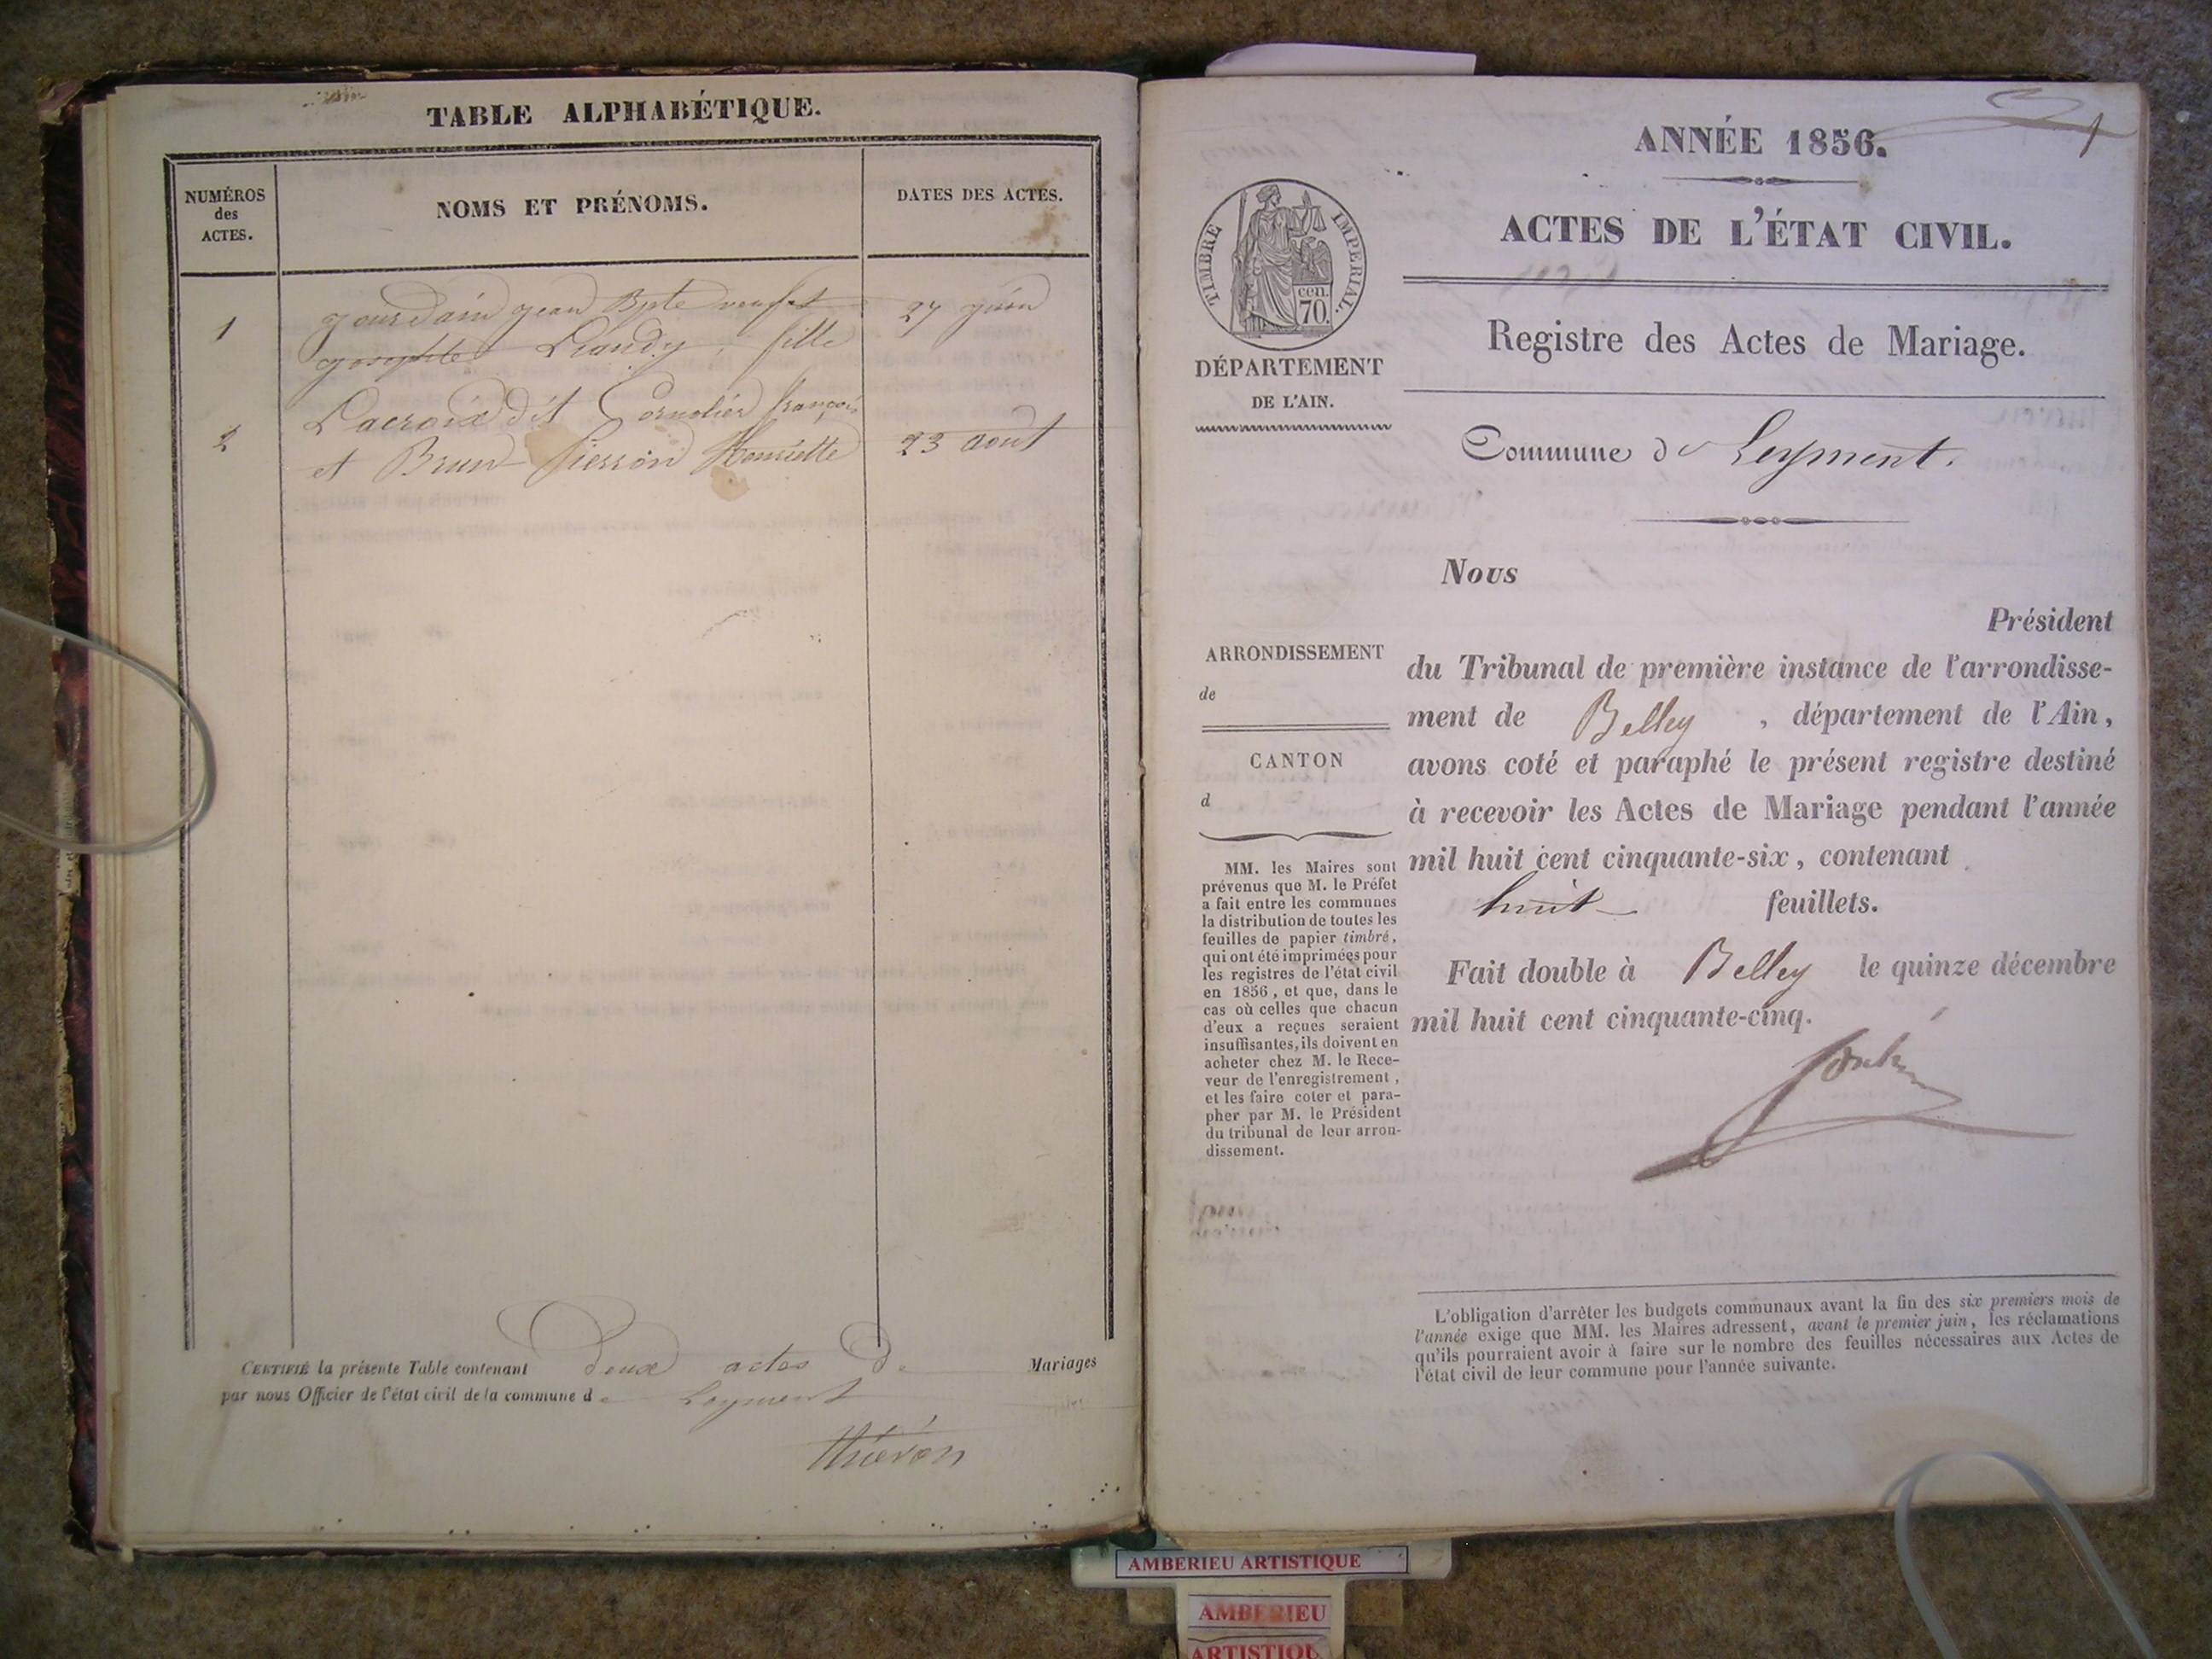 TABLE ALPHABÉTIQUE.
NUMÉROS
des
ACTES.
NOMS ET PRÉNOMS.
DATES DES ACTES.
1
gourdain jean Bpte veuf et
27 juin
josephte Liaudy, fille
2
Lacroix dit Cornolier françois
et Brun Pierron Henriette
23 aout
CERTIFIÉ la présente Table contenant deux actes de Mariages
par nous Officier de l'état civil de la commune de Leyment
thiévon
ANNÉE 1856.
1
ACTES DE L'ÉTAT CIVIL.
TIMBRE IMPERIAL.
cen.
70.
Registre des Actes de Mariage.
DÉPARTEMENT
DE L'AIN.
Commune de Leyment.
Nous
Président
du Tribunal de première instance de l'arrondisse-
ment de Belley, département de l'Ain,
avons coté et paraphé le présent registre destiné
à recevoir les Actes de Mariage pendant l'année
mil huit cent cinquante-six, contenant
huit feuillets.
Fait double à Belley le quinze décembre
mil huit cent cinquante-cinq.
ARRONDISSEMENT
de
CANTON
d
MM. les Maires sont
prévenus que M. le Préfet
a fait entre les communes
la distribution de toutes les
feuilles de papier timbré,
qui ont été imprimées pour
les registres de l'état civil
en 1856, et que, dans le
cas où celles que chacun
d'eux a reçues seraient
insuffisantes, ils doivent en
acheter chez M. le Rece-
veur de l'enregistrement,
et les faire coter et para-
pher par M. le Président
du tribunal de leur arron-
dissement.
L'obligation d'arrêter les budgets communaux avant la fin des six premiers mois de
l'année exige que MM. les Maires adressent, avant le premier juin, les réclamations
qu'ils pourraient avoir à faire sur le nombre des feuilles nécessaires aux Actes de
l'état civil de leur commune pour l'année suivante.
AMBERIEU ARTISTIQUE
AMBERIEU
ARTISTIQU